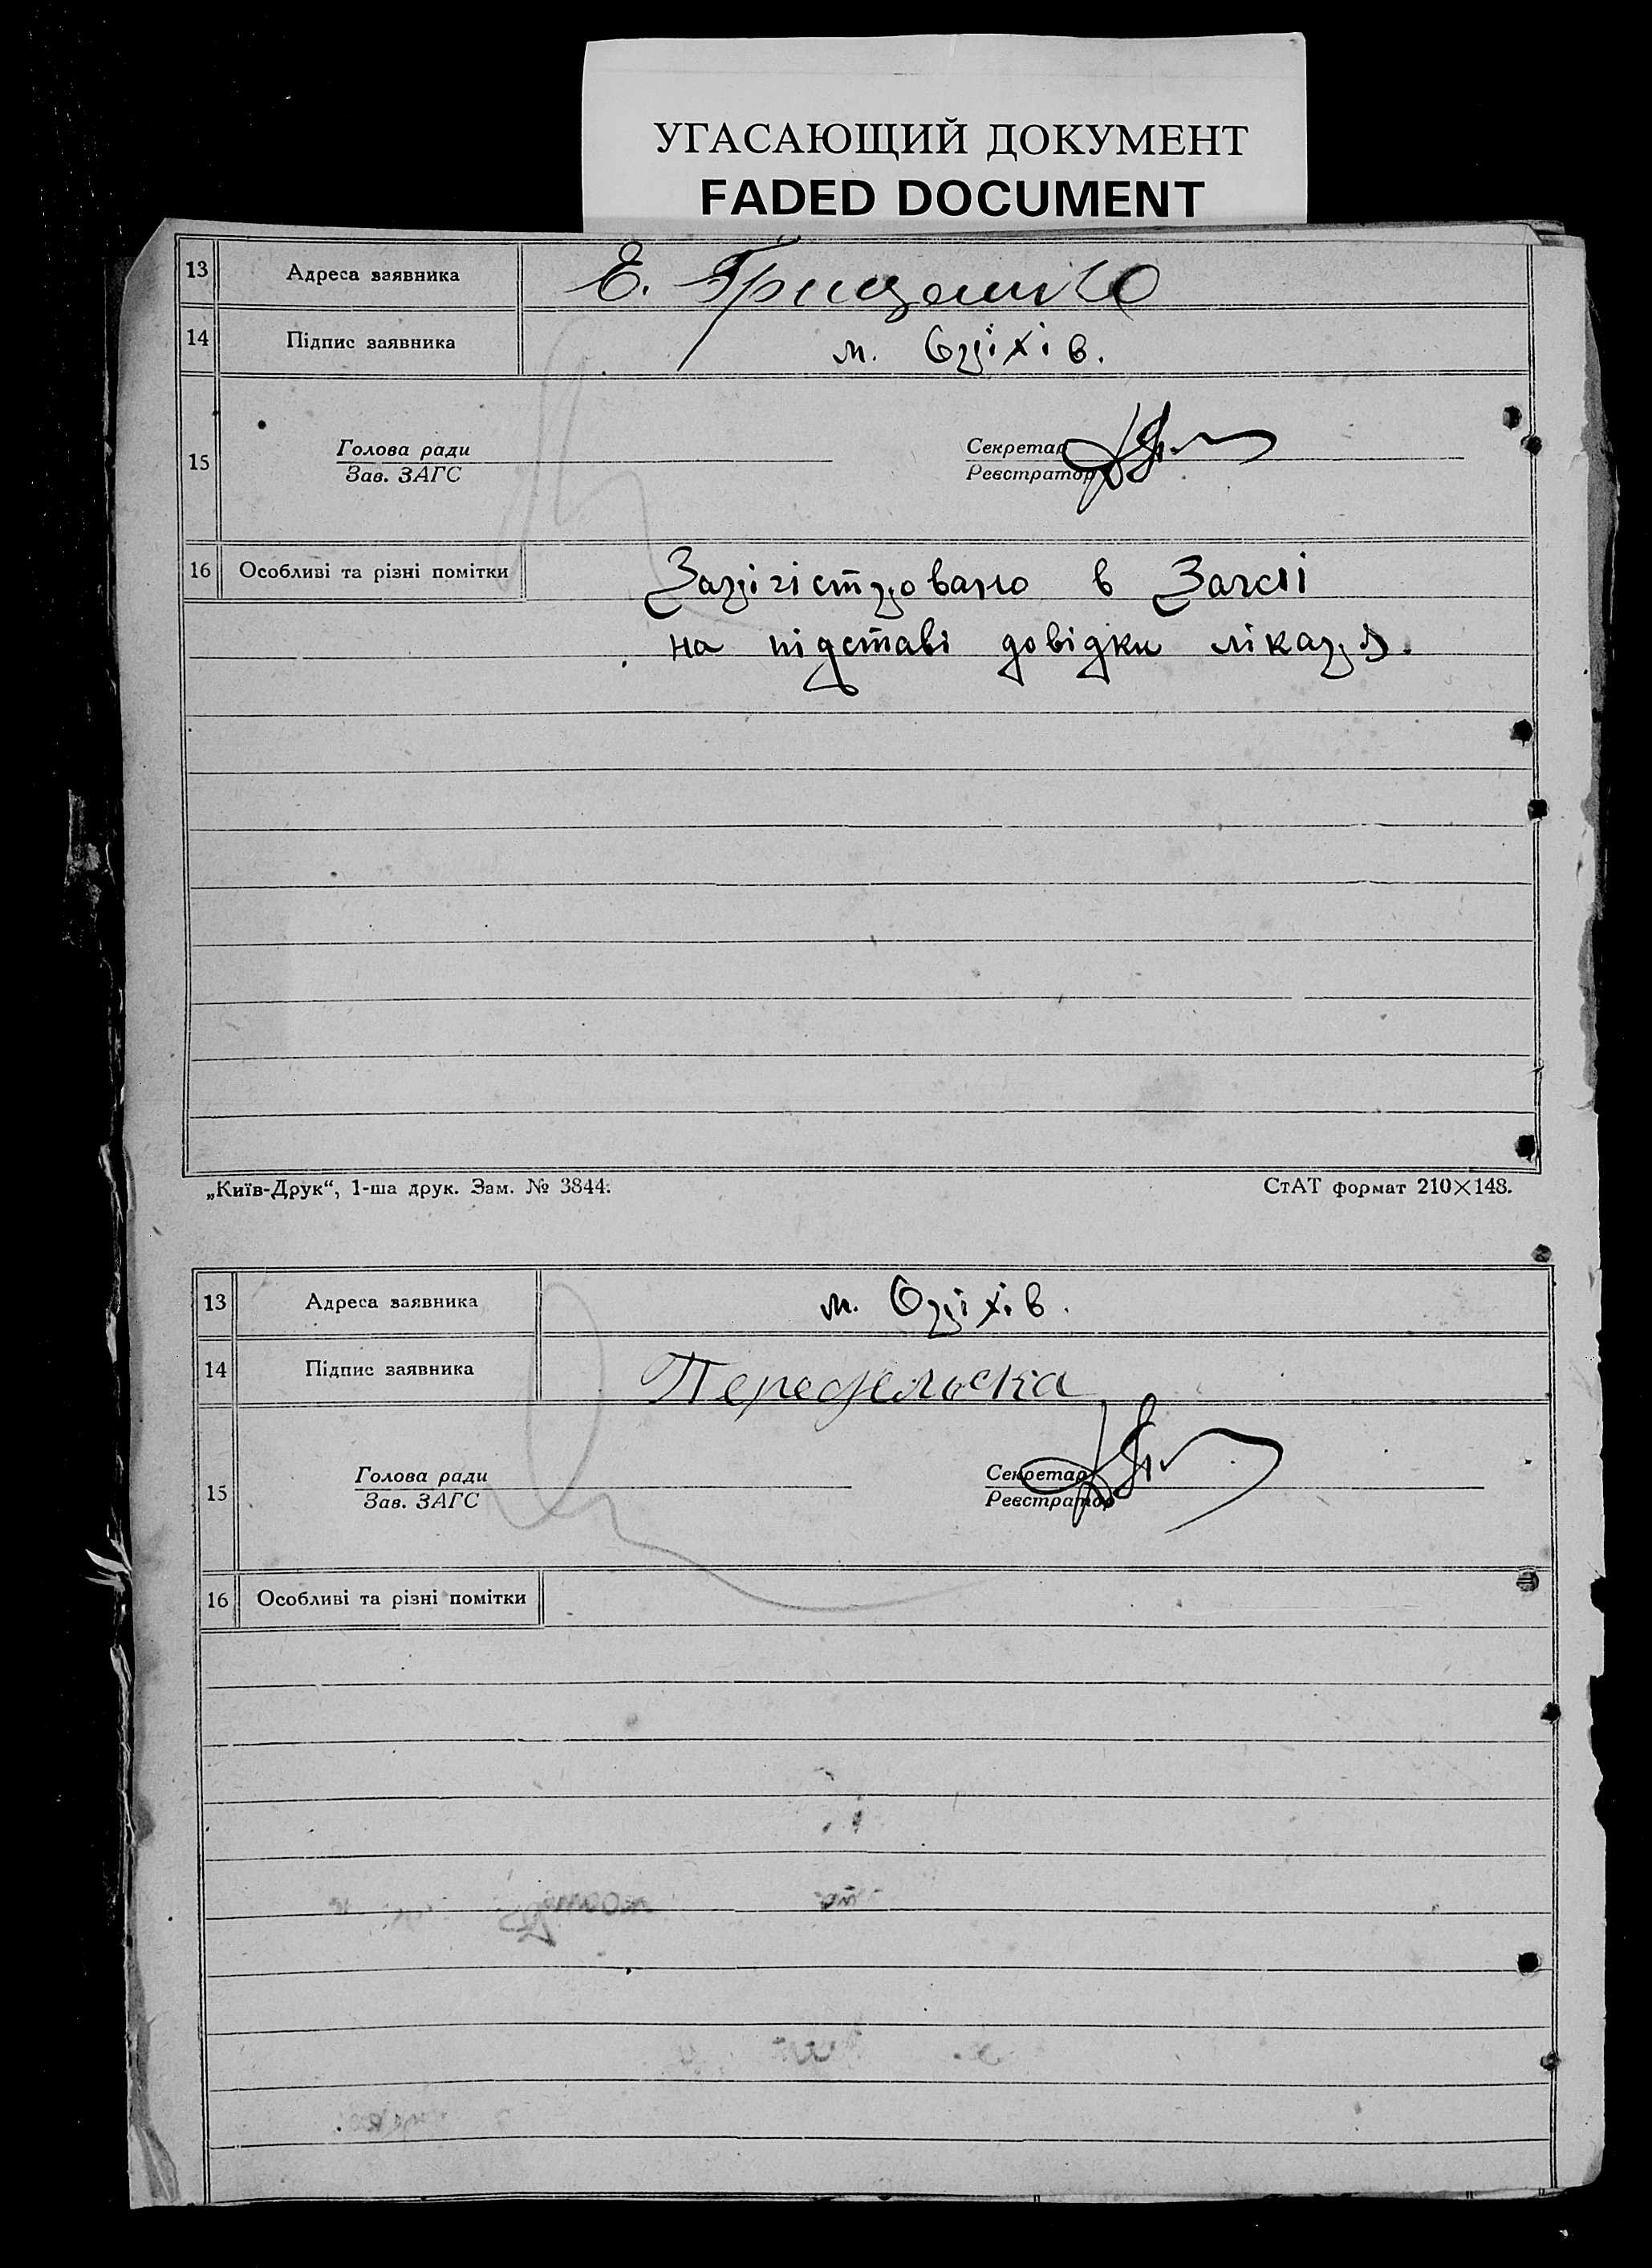 УГАСАЮЩИЙ ДОКУМЕНТ
FADED DOCUMENT
13 Адреса заявника Е. Грищенко
14 Підпис заявника м. Оріхів.
15 Голова ради Секретар
Зав. ЗАГС Реєстратор
16 Особливі та різні помітки Зарігістровано в Загсі
на підставі довідки лікаря.
„Київ-Друк“, 1-ша друк. Зам. № 3844. СтАТ формат 210×148.
13 Адреса заявника м. Оріхів.
14 Підпис заявника Передельска
15 Голова ради Секретар
Зав. ЗАГС Реєстратор
16 Особливі та різні помітки